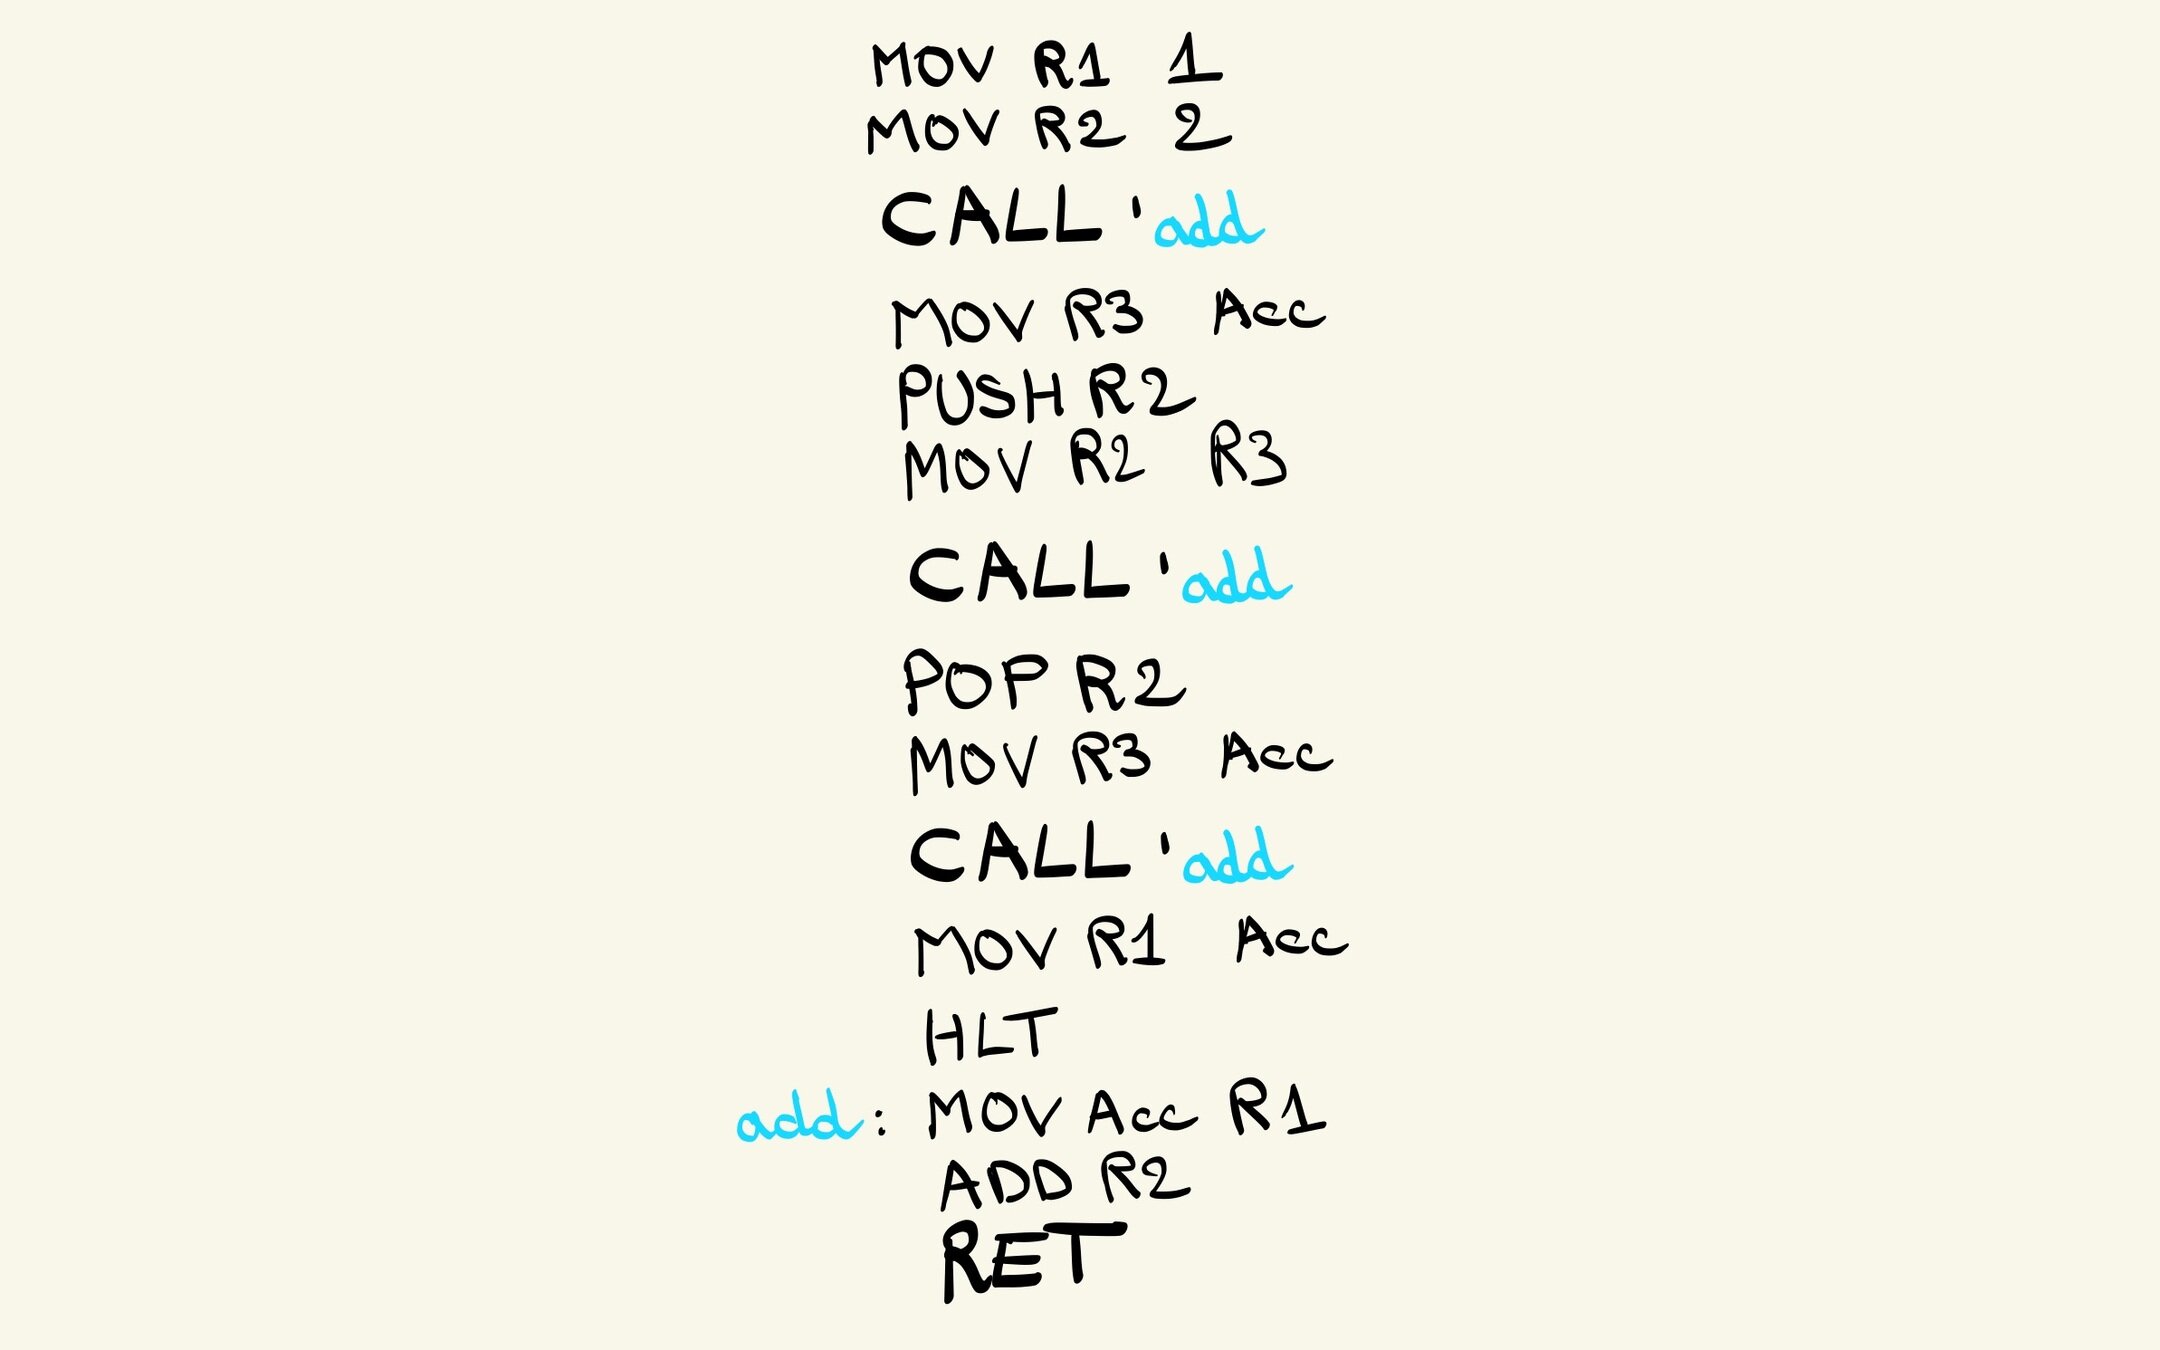 MOV R1 1
MOV R2 2
CALL 'add
MOV R3 Acc
PUSH R2
MOV R2 R3
CALL 'add
POP R2
MOV R3 Acc
CALL 'add
MOV R1 Acc
HLT
add: MOV Acc R1
ADD R2
RET